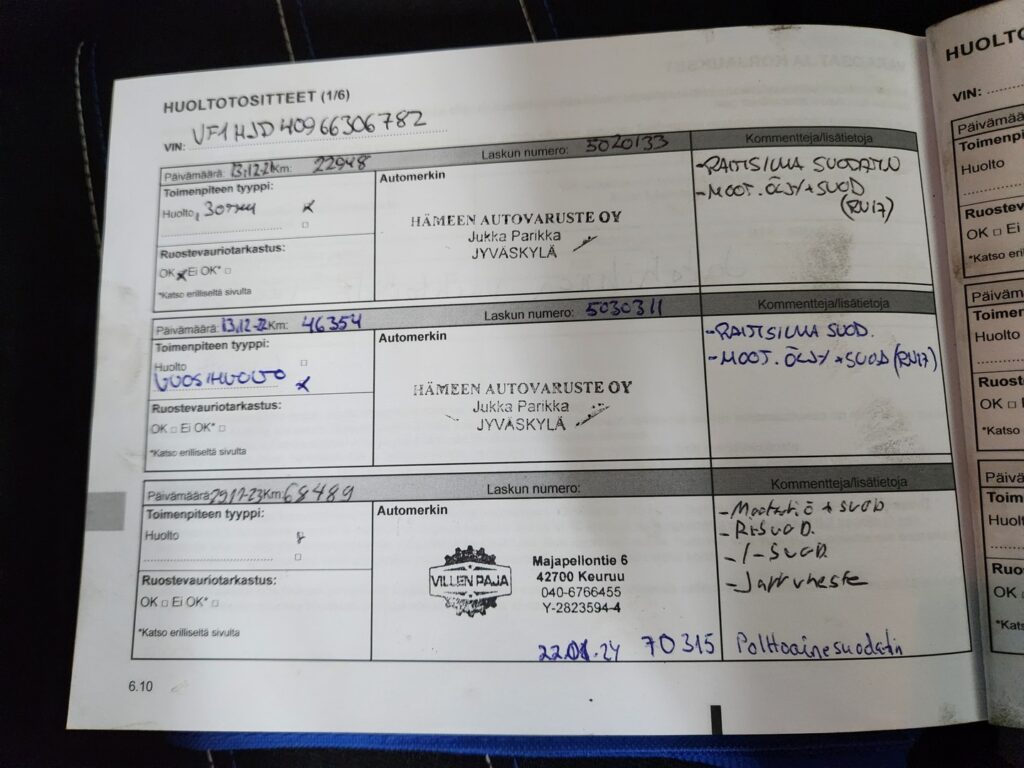 HUOLTOTOSITTEET (1/6)
VIN: VF1MJD40966306782
Päivämäärä: 13.12-21 Km: 22948 Laskun numero: 5020133 Kommentteja/lisätietoja
Toimenpiteen tyyppi:
Huolto
Ruostevauriotarkastus:
OK Ei OK*
*Katso erilliseltä sivulta
Automerkin
HÄMEEN AUTOVARUSTE OY
Jukka Parikka
JYVÄSKYLÄ
-RAITISILMA SUODATIN
-MOOT. ÖLJY+SUOD
(RN17)
Päivämäärä: 13.12-22 Km: 46354 Laskun numero: 5030311 Kommentteja/lisätietoja
Toimenpiteen tyyppi:
Huolto
VUOSIHUOLTO
Ruostevauriotarkastus:
OK □ Ei OK* □
*Katso erilliseltä sivulta
Automerkin
HÄMEEN AUTOVARUSTE OY
Jukka Parikka
JYVÄSKYLÄ
-RAITISILMA SUOD.
-MOOT. ÖLJY +SUOD (RN17)
Päivämäärä: Km: 68489 Laskun numero: Kommentteja/lisätietoja
Toimenpiteen tyyppi:
Huolto
Ruostevauriotarkastus:
OK □ Ei OK* □
*Katso erilliseltä sivulta
Automerkin
VILLEN PAJA
Majapellontie 6
42700 Keuruu
040-6766455
Y-2823594-4
+ suod
-R.SUOD.
-I-SUOD.
-Jarruneste
70315 Polttoainesuodatin
6.10
HUOLTO
VIN:
Päivämää
Toimenpi
Huolto
Ruostev
OK □ Ei
*Katso eril
Päiväm
Toimer
Huolto
Ruoste
OK □
*Katso
Päiv
Toim
Huol
Ruo
OK
*Kats